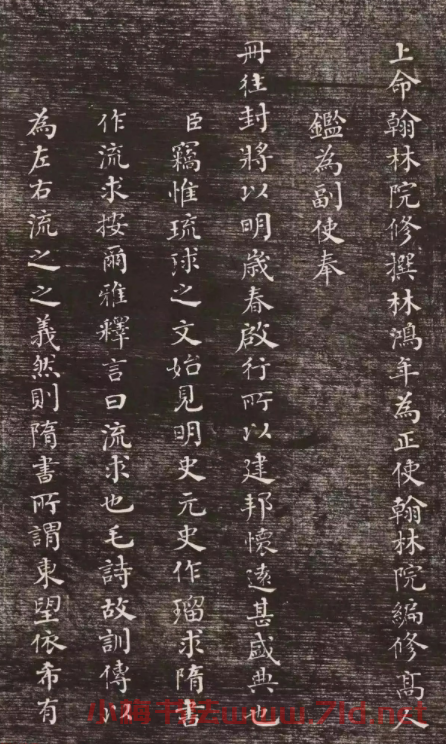 上命翰林院修撰林鴻年為正使翰林院編修髙人
鑑為副使奉
冊往封將以明歲春啟行所以建邦懷遠甚盛典也
臣竊惟琉球之文始見明史元史作瑠求隋書
作流求按爾雅釋言曰流求也毛詩故訓傳以
為左右流之之義然則隋書所謂東望依希有
小梅书法www.7ld.net